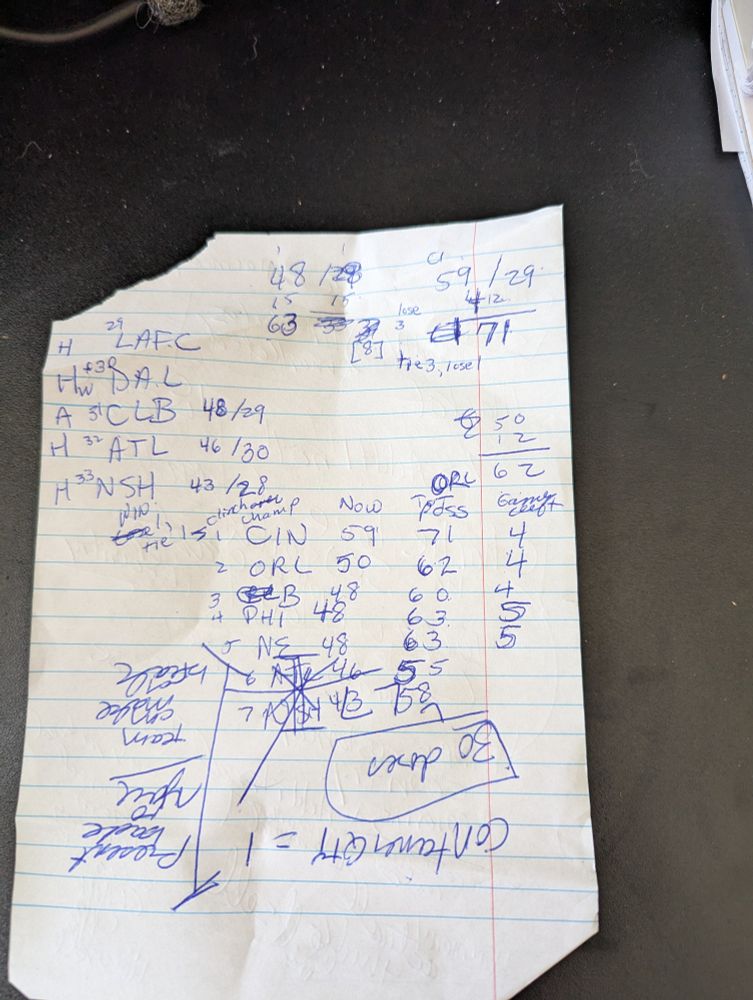 48 /29 59 /29
15 15 4 12
63 33 lose 3 71
[8] tie 3, lose 1
H 29 LAFC
H +30 DAL
W
A 31 CLB 48/29 50
H 32 ATL 46/30 12
62
H 33 NSH 43/28 ORL
WIN clinch champ Now Poss Games left
tie 1 CIN 59 71 4
2 ORL 50 62 4
3 CLB 48 60 4
4 PHI 48 63 5
5 NE 48 63 5
6 ATL 46 55
7 NSH 43 58
30 doses
Container QTY = 1
Present
to
team
make